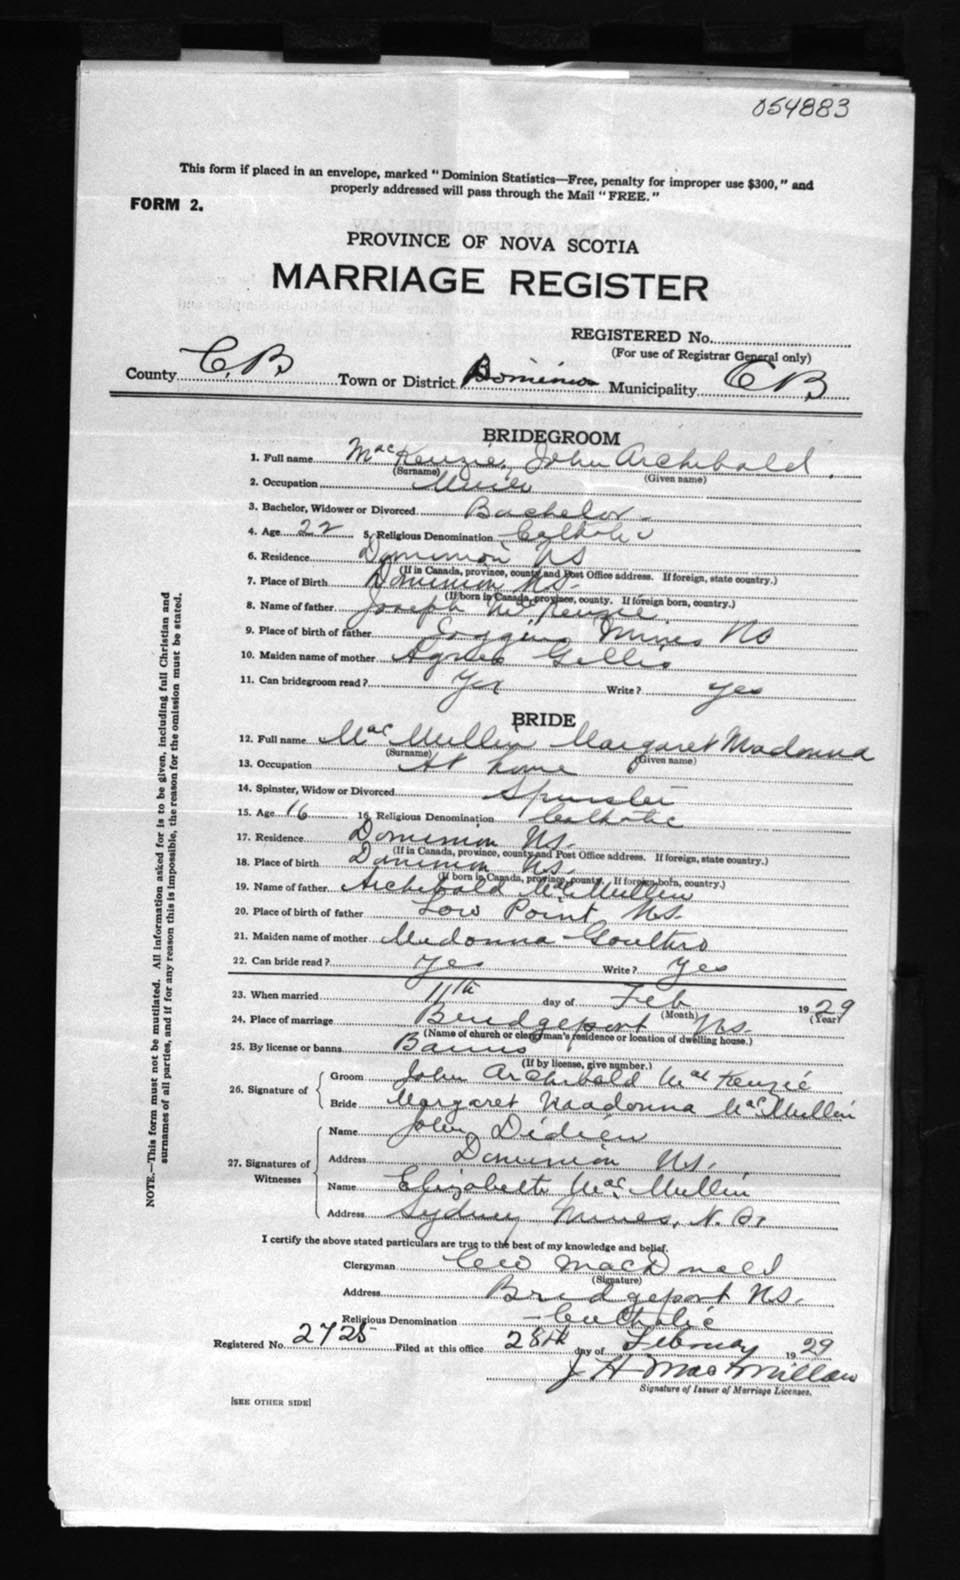 054883
This form if placed in an envelope, marked "Dominion Statistics—Free, penalty for improper use $300," and
properly addressed will pass through the Mail "FREE."
FORM 2.
PROVINCE OF NOVA SCOTIA
MARRIAGE REGISTER
REGISTERED No.
(For use of Registrar General only)
County C.B Town or District Dominion Municipality C B
BRIDEGROOM
1. Full name MacKenzie, John Archibald
(Surname) (Given name)
2. Occupation Miner
3. Bachelor, Widower or Divorced Bachelor
4. Age 22 5. Religious Denomination Catholic
6. Residence Dominion NS
(If in Canada, province, county and Post Office address. If foreign, state country.)
7. Place of Birth Dominion N.S.
(If born in Canada, province, county. If foreign born, country.)
8. Name of father Joseph McKenzie
9. Place of birth of father Mines NS
10. Maiden name of mother Agnes Gillis
11. Can bridegroom read? Yes Write? yes
BRIDE
12. Full name MacMullin Margaret Madonna
(Surname) (Given name)
13. Occupation At home
14. Spinster, Widow or Divorced Spinster
15. Age 16 16. Religious Denomination Catholic
17. Residence Dominion NS.
(If in Canada, province, county and Post Office address. If foreign, state country.)
18. Place of birth Dominion NS.
(If born in Canada, province, county. If foreign born, country.)
19. Name of father Archibald MacMullin
20. Place of birth of father Low Point N.S.
21. Maiden name of mother Madonna
22. Can bride read? yes Write? yes
23. When married 11th day of Feb 1929
(Month) (Year)
24. Place of marriage Bridgeport NS.
(Name of church or clergyman's residence or location of dwelling house.)
25. By license or banns Banns
(If by license, give number.)
26. Signature of Groom John Archibald MacKenzie
Bride Margaret Madonna MacMullin
27. Signatures of Witnesses
Name John
Address Dominion NS.
Name Elizabeth MacMullin
Address Sydney Mines, N.S.
I certify the above stated particulars are true to the best of my knowledge and belief.
Clergyman MacDonald
(Signature)
Address Bridgeport NS.
Religious Denomination Catholic
Registered No. 2725 Filed at this office 28th day of February 1929
J H MacMillan
Signature of Issuer of Marriage Licenses.
[SEE OTHER SIDE]
NOTE.—This form must not be mutilated. All information asked for is to be given, including full Christian and
surnames of all parties, and if for any reason this is impossible, the reason for the omission must be stated.